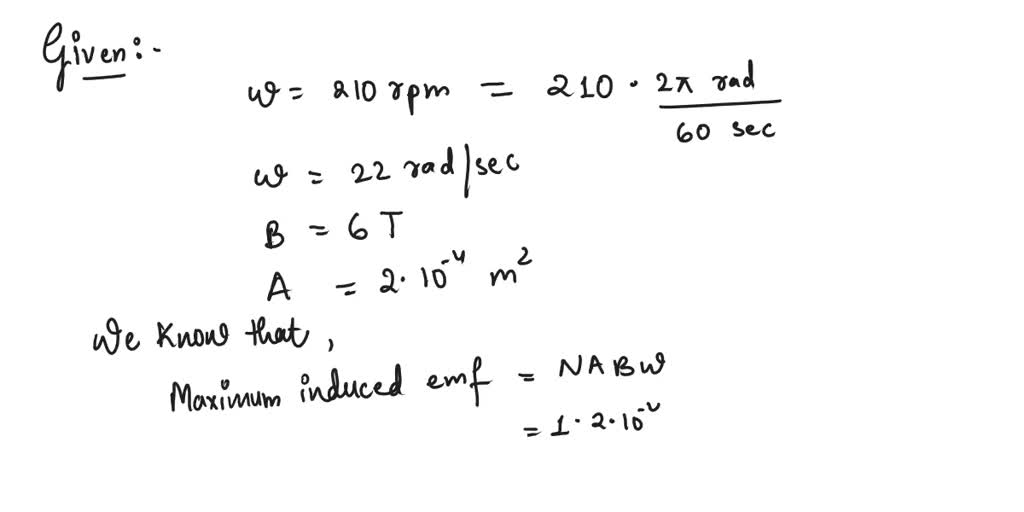 Given:-
ω = 210 rpm = 210 · 2π rad / 60 sec
ω = 22 rad/sec
B = 6 T
A = 2·10⁻⁴ m²
We know that,
Maximum induced emf = NABω
= 1·2·10⁻⁴